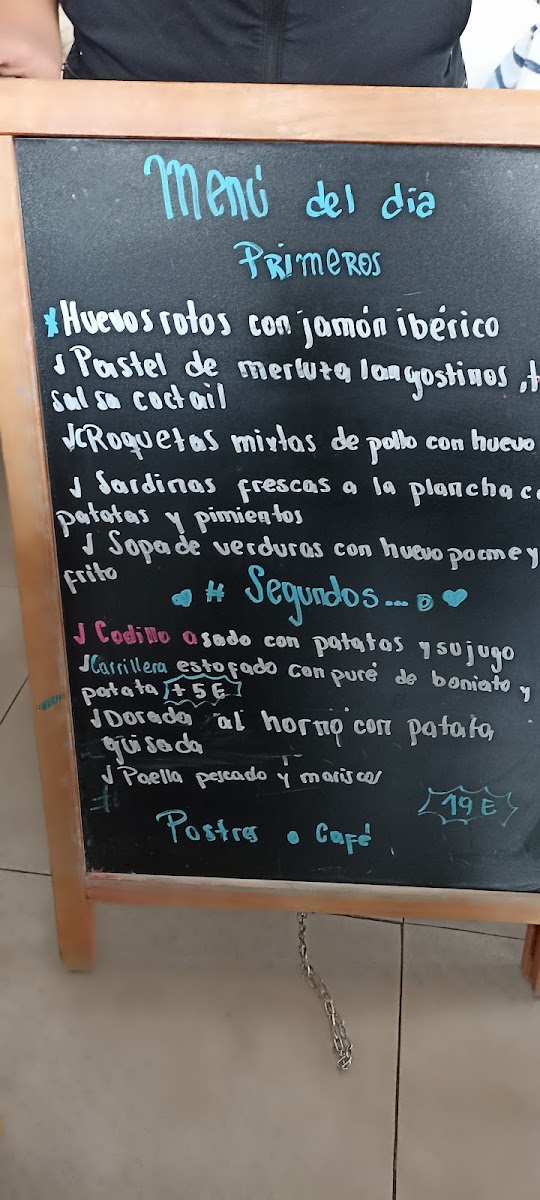 Menú del dia
PRimeROS
*Huevos rotos con jamón ibérico
✓Pastel de merluza langostinos, t
salsa coctail
✓CRoquetas mixtas de pollo con huevo
✓ Sardinas frescas a la plancha c
patatas y pimientos
✓ Sopa de verduras con huevo y
frito
# Segundos... ♥
✓ Codillo asado con patatas y su jugo
✓Carrillera estofado con puré de boniato y
patata +5€
✓Dorada al horno con patata
guisada
✓Paella pescado y marisco
19€
Postres o Café